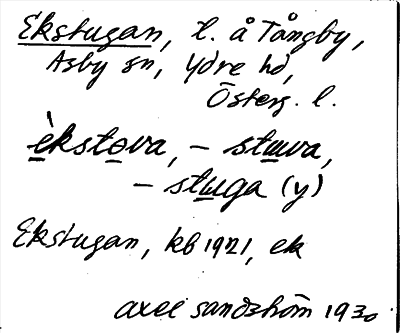 Ekstugan, t. å Tångby,
Asby sn, Ydre hd,
Österg. l.
èkstova, - stuva,
- stuga (y)
Ekstugan, kb 1921, ek
Axel Sandström 1930